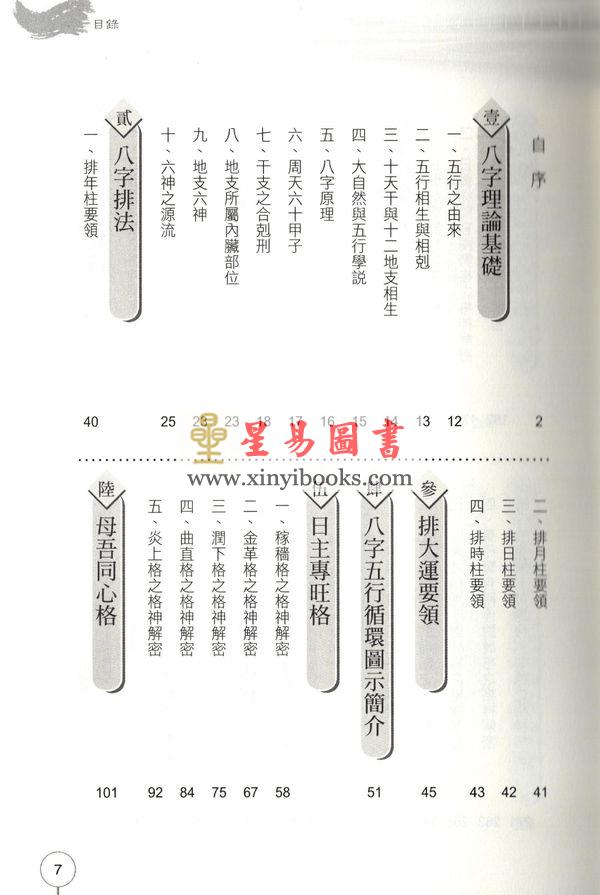 目錄
自序 2
壹 八字理論基礎
一、五行之由來 12
二、五行相生與相剋 13
三、十天干與十二地支相生 14
四、大自然與五行學說 15
五、八字原理 16
六、周天六十甲子 17
七、干支之合剋刑 18
八、地支所屬內臟部位 23
九、地支六神 23
十、六神之源流 25
貳 八字排法
一、排年柱要領 40
星易圖書
www.xinyibooks.com
二、排月柱要領 41
三、排日柱要領 42
四、排時柱要領 43
參 排大運要領 45
肆 八字五行循環圖示簡介 51
伍 日主專旺格
一、稼穡格之格神解密 58
二、金革格之格神解密 67
三、潤下格之格神解密 75
四、曲直格之格神解密 84
五、炎上格之格神解密 92
陸 母吾同心格 101
7